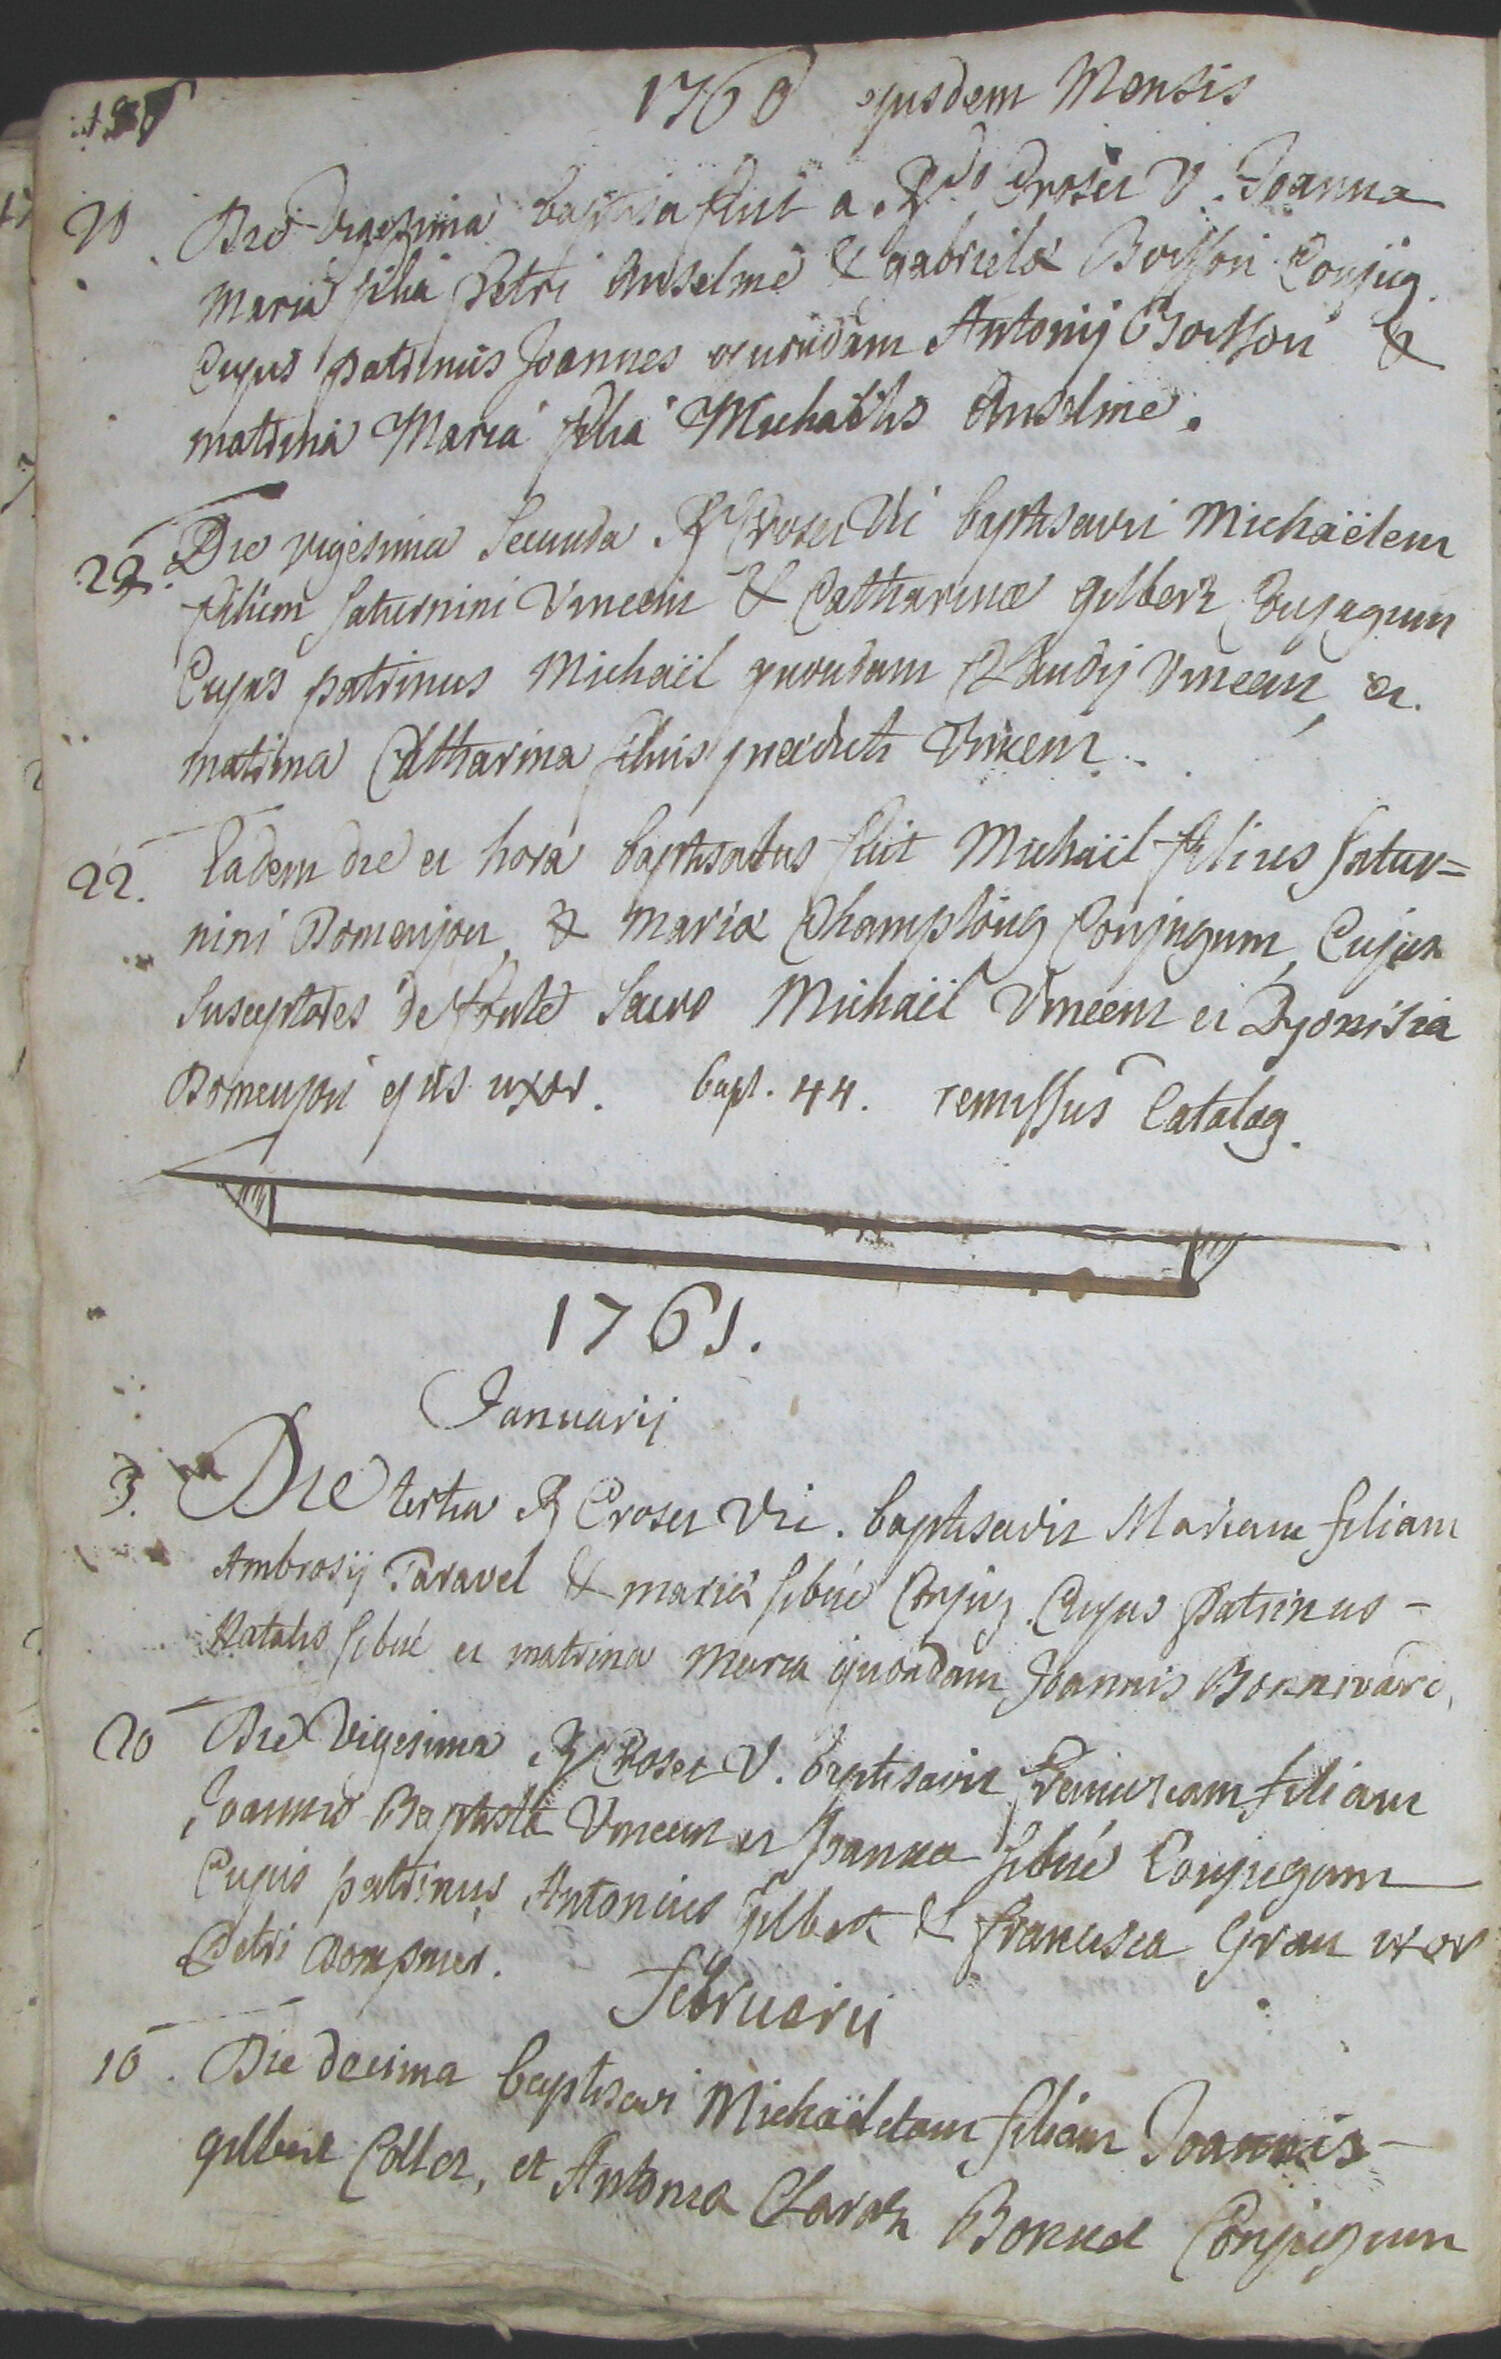 1760 ejusdem Mensis
20 Die Vigesima baptisa fuit a Rdo Croset V. Joanna
Maria filia Petri Anselme & gabrielæ Boisson Conjug.
Cujus patrinus Joannes quondam Antonij Boisson &
matrina Maria filia Michaëlis Anselme.
22. Die vigesima Secunda R Croset Vic baptisavit Michaëlem
filium Saturnini Vincent & Catharinæ gilbert Conjugum
Cujus patrinus Michaël quondam Claudij Vincent, et
matrina Catharina filius prædicti Vincent.
22. Eadem die et hora baptisatus fuit Michaël filius Satur=
nini Domenjon, & Mariæ Champlong Conjugum, Cujus
Susceptores de fonte Sacro Michaël Vincent et Dyonisia
Domenjon ejus uxor. bapt. 44. remissus Catalog.
1761.
Januarij
3. Die tertia R Croset Vic. baptisavit Mariam filiam
Ambrosij Taravel & mariæ Sibué Conjug. Cujus Patrinus -
Natalis Sibué et matrina Maria quondam Joannis Bonnivard,
20 Die Vigesima R Croset V. baptisavit filiam
Joannis Baptistæ Vincent et Joanna Sibué Conjugum
Cujus patrinus Antonius gilbert & francisca Grau uxor
Petri Dompnier.
februarij
10. Die decima baptisavi Michaëletam filiam Joannis -
gilbert Collet, et Antonia Claraz Bonnel Conjugum